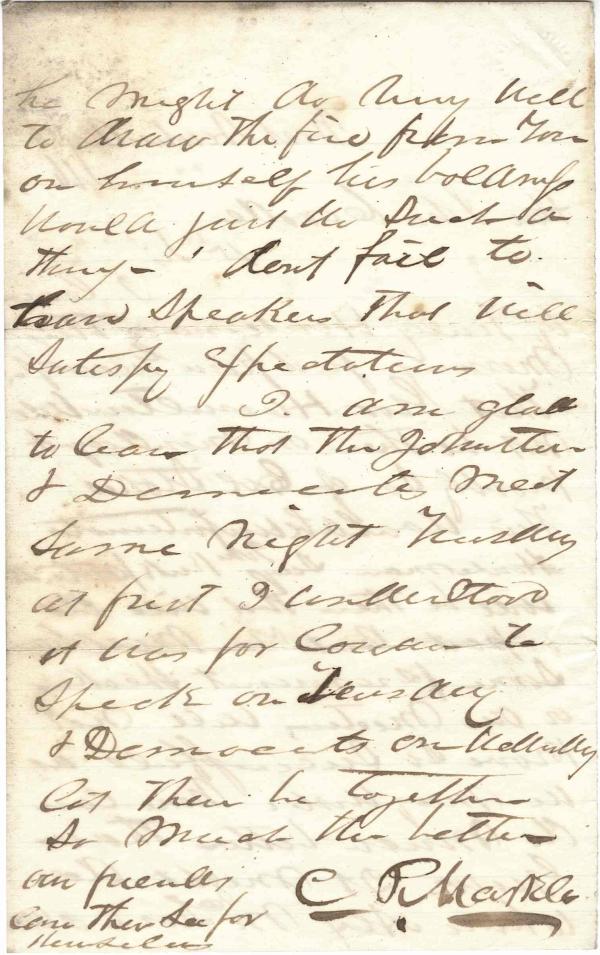 he might do very well
to draw the fire from you
on himself his boldness
would just do such a
thing - dont fail to
have speakers that will
satisfy Expectations
I. am glad
to learn that the
& Democrats meet
same night Tuesday
at first I understood
it was for Cowan to
speak on Tuesday
& Democrats on
let them be together
so much the better
our friends
can then see for
themselves
C P Markle